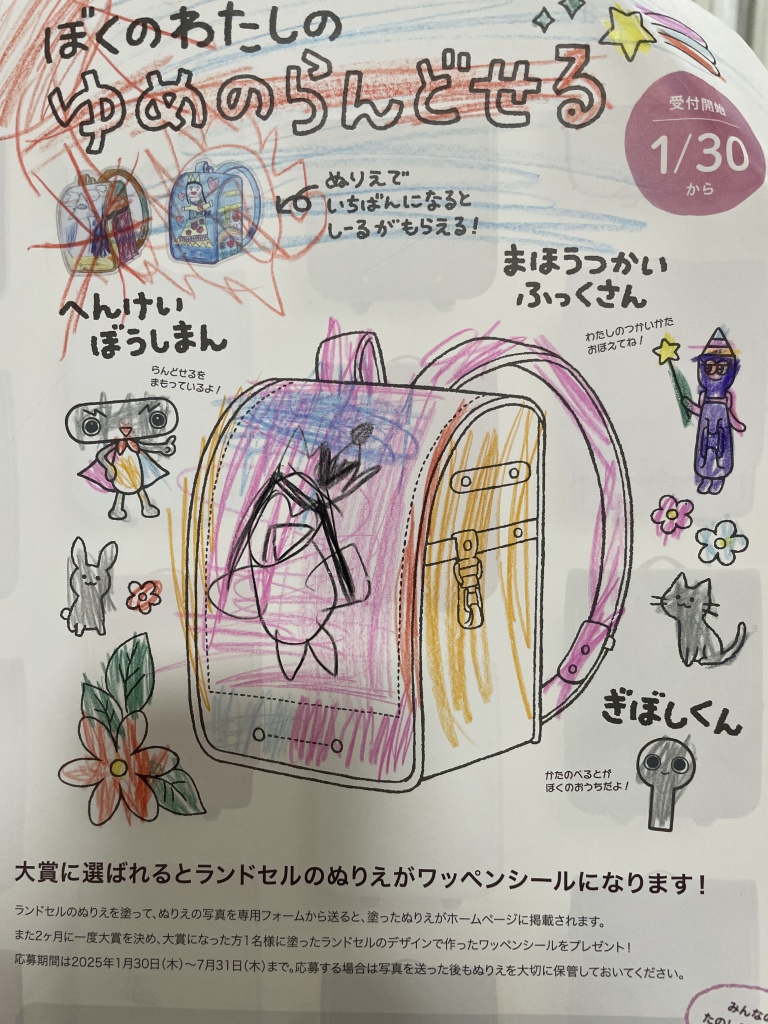 ぼくのわたしの
ゆめのらんどせる
受付開始
1/30
から
ぬりえで
いちばんになると
しーるがもらえる!
まほうつかい
ふっくさん
わたしのつかいかた
おぼえてね!
へんけい
ぼうしまん
らんどせるを
まもっているよ!
ぎぼしくん
かたのべるとが
ぼくのおうちだよ!
大賞に選ばれるとランドセルのぬりえがワッペンシールになります!
ランドセルのぬりえを塗って、ぬりえの写真を専用フォームから送ると、塗ったぬりえがホームページに掲載されます。
また2ヶ月に一度大賞を決め、大賞になった方1名様に塗ったランドセルのデザインで作ったワッペンシールをプレゼント!
応募期間は2025年1月30日(木)~7月31日(木)まで。応募する場合は写真を送った後もぬりえを大切に保管しておいてください。
みんなの